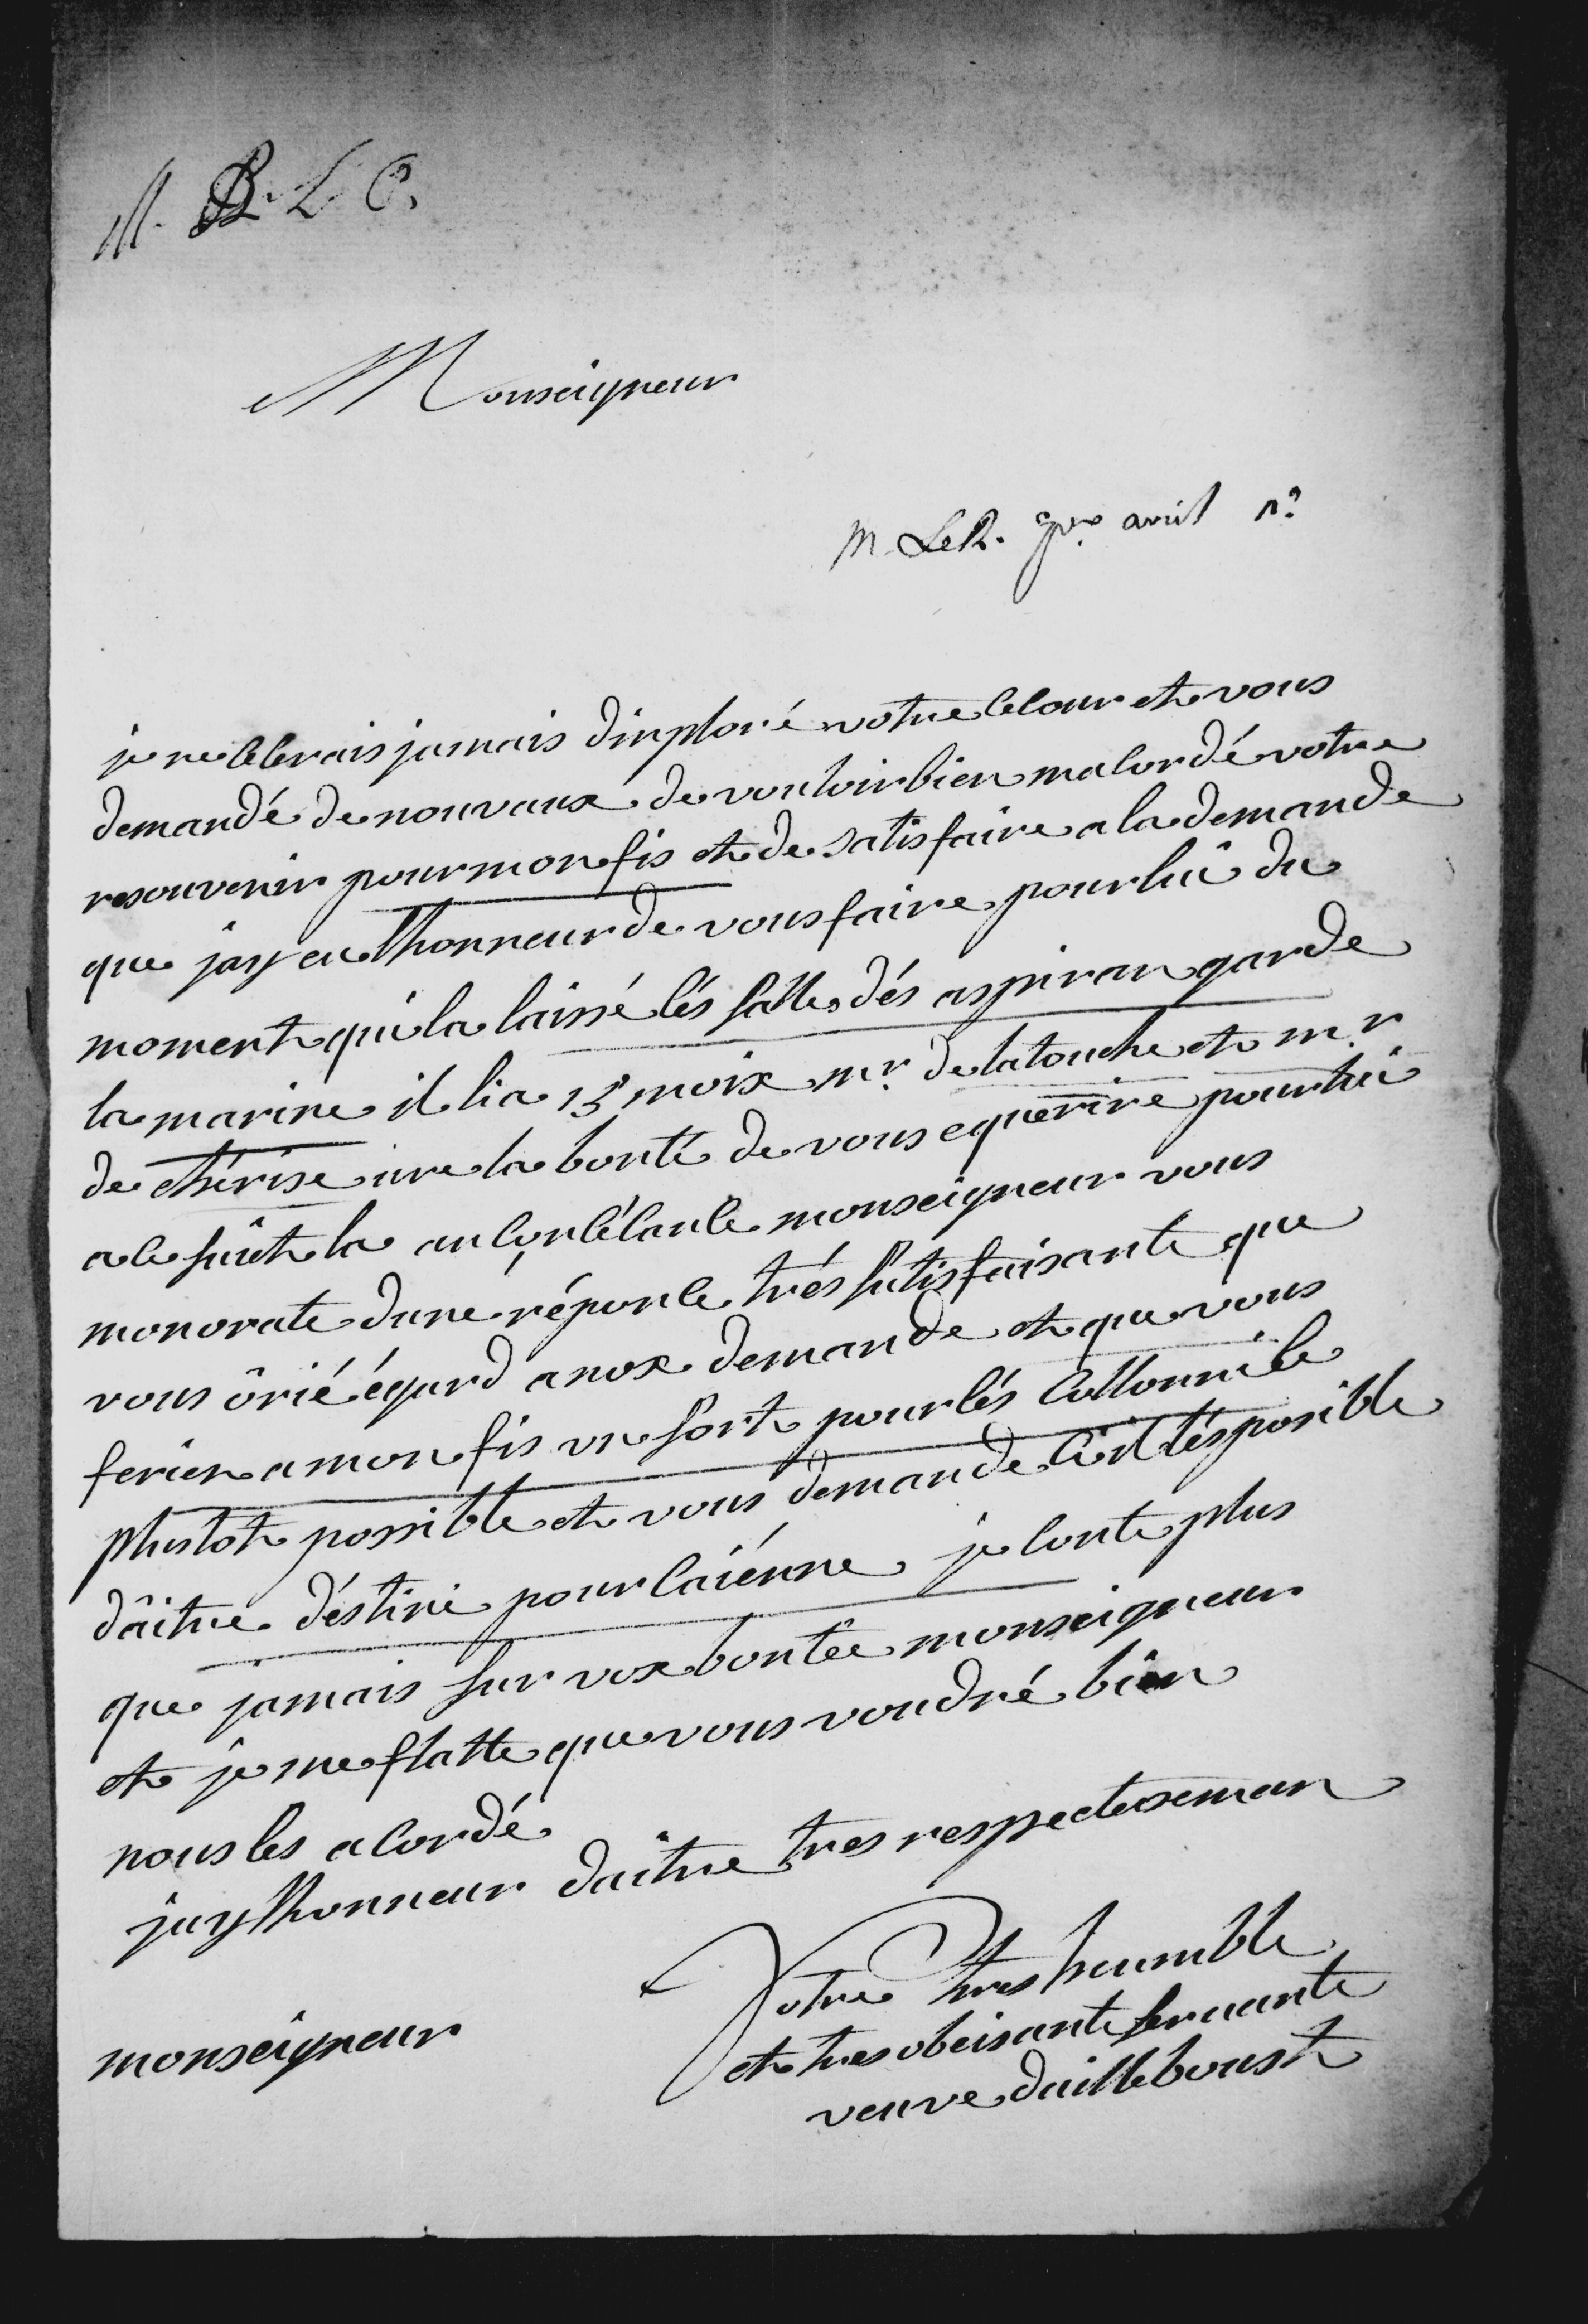 M. B. L. C.
Monseigneur
M. LeR. avril
je ne cecerais jamais dinploré votre secour et vous
demandé de nouvaux de vouloir bien macordé votre
resouvenir pour mon fis et de satisfaire a la demande
que jay eu lhonneur de vous faire pour lui du
moment qui la laissé lés salle dés aspiran garde
la marine il lia 13 mois mr. de latouche et mr.
de thérise ure la bonté de vous equerire pour lui
a ce suit la an conséance monseigneur vous
monorate dune réponce trés satisfaisante que
vous orié égard a nox demande et que vous
ferien a mon fis un sort pour lés collonni le
plustot possible et vous demande cil lés posible
daitre déstiné pour Caiénne je conte plus
que jamais sur vox bontée monseigneur
et je me flatte que vous voudré bien
nous les acordé
jay lhonneur daitre tres respectuseman
monseigneur
Votre tres humble
et tres obeisante servante
veuve dailleboust